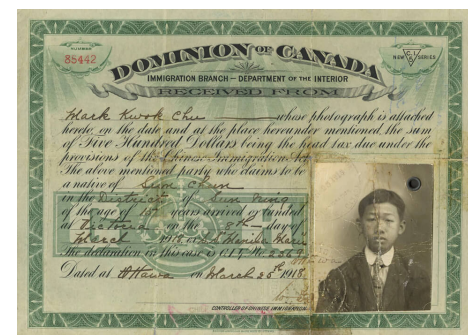 NUMBER
85442
NEW C.I. 5 SERIES
DOMINION OF CANADA
IMMIGRATION BRANCH — DEPARTMENT OF THE INTERIOR
RECEIVED FROM
Mark Kwok Chu whose photograph is attached
hereto, on the date and at the place hereunder mentioned, the sum
of Five Hundred Dollars being the head tax due under the
provisions of the Chinese Immigration Act.
The above mentioned party who claims to be
a native of Chun
in the District of Sun Ning
of the age of years arrived or landed
at Victoria on the 8th day of
March 1918
the declaration in this case is C.I.4. No.
Dated at Ottawa on March 25th 1918
CONTROLLER OF CHINESE IMMIGRATION